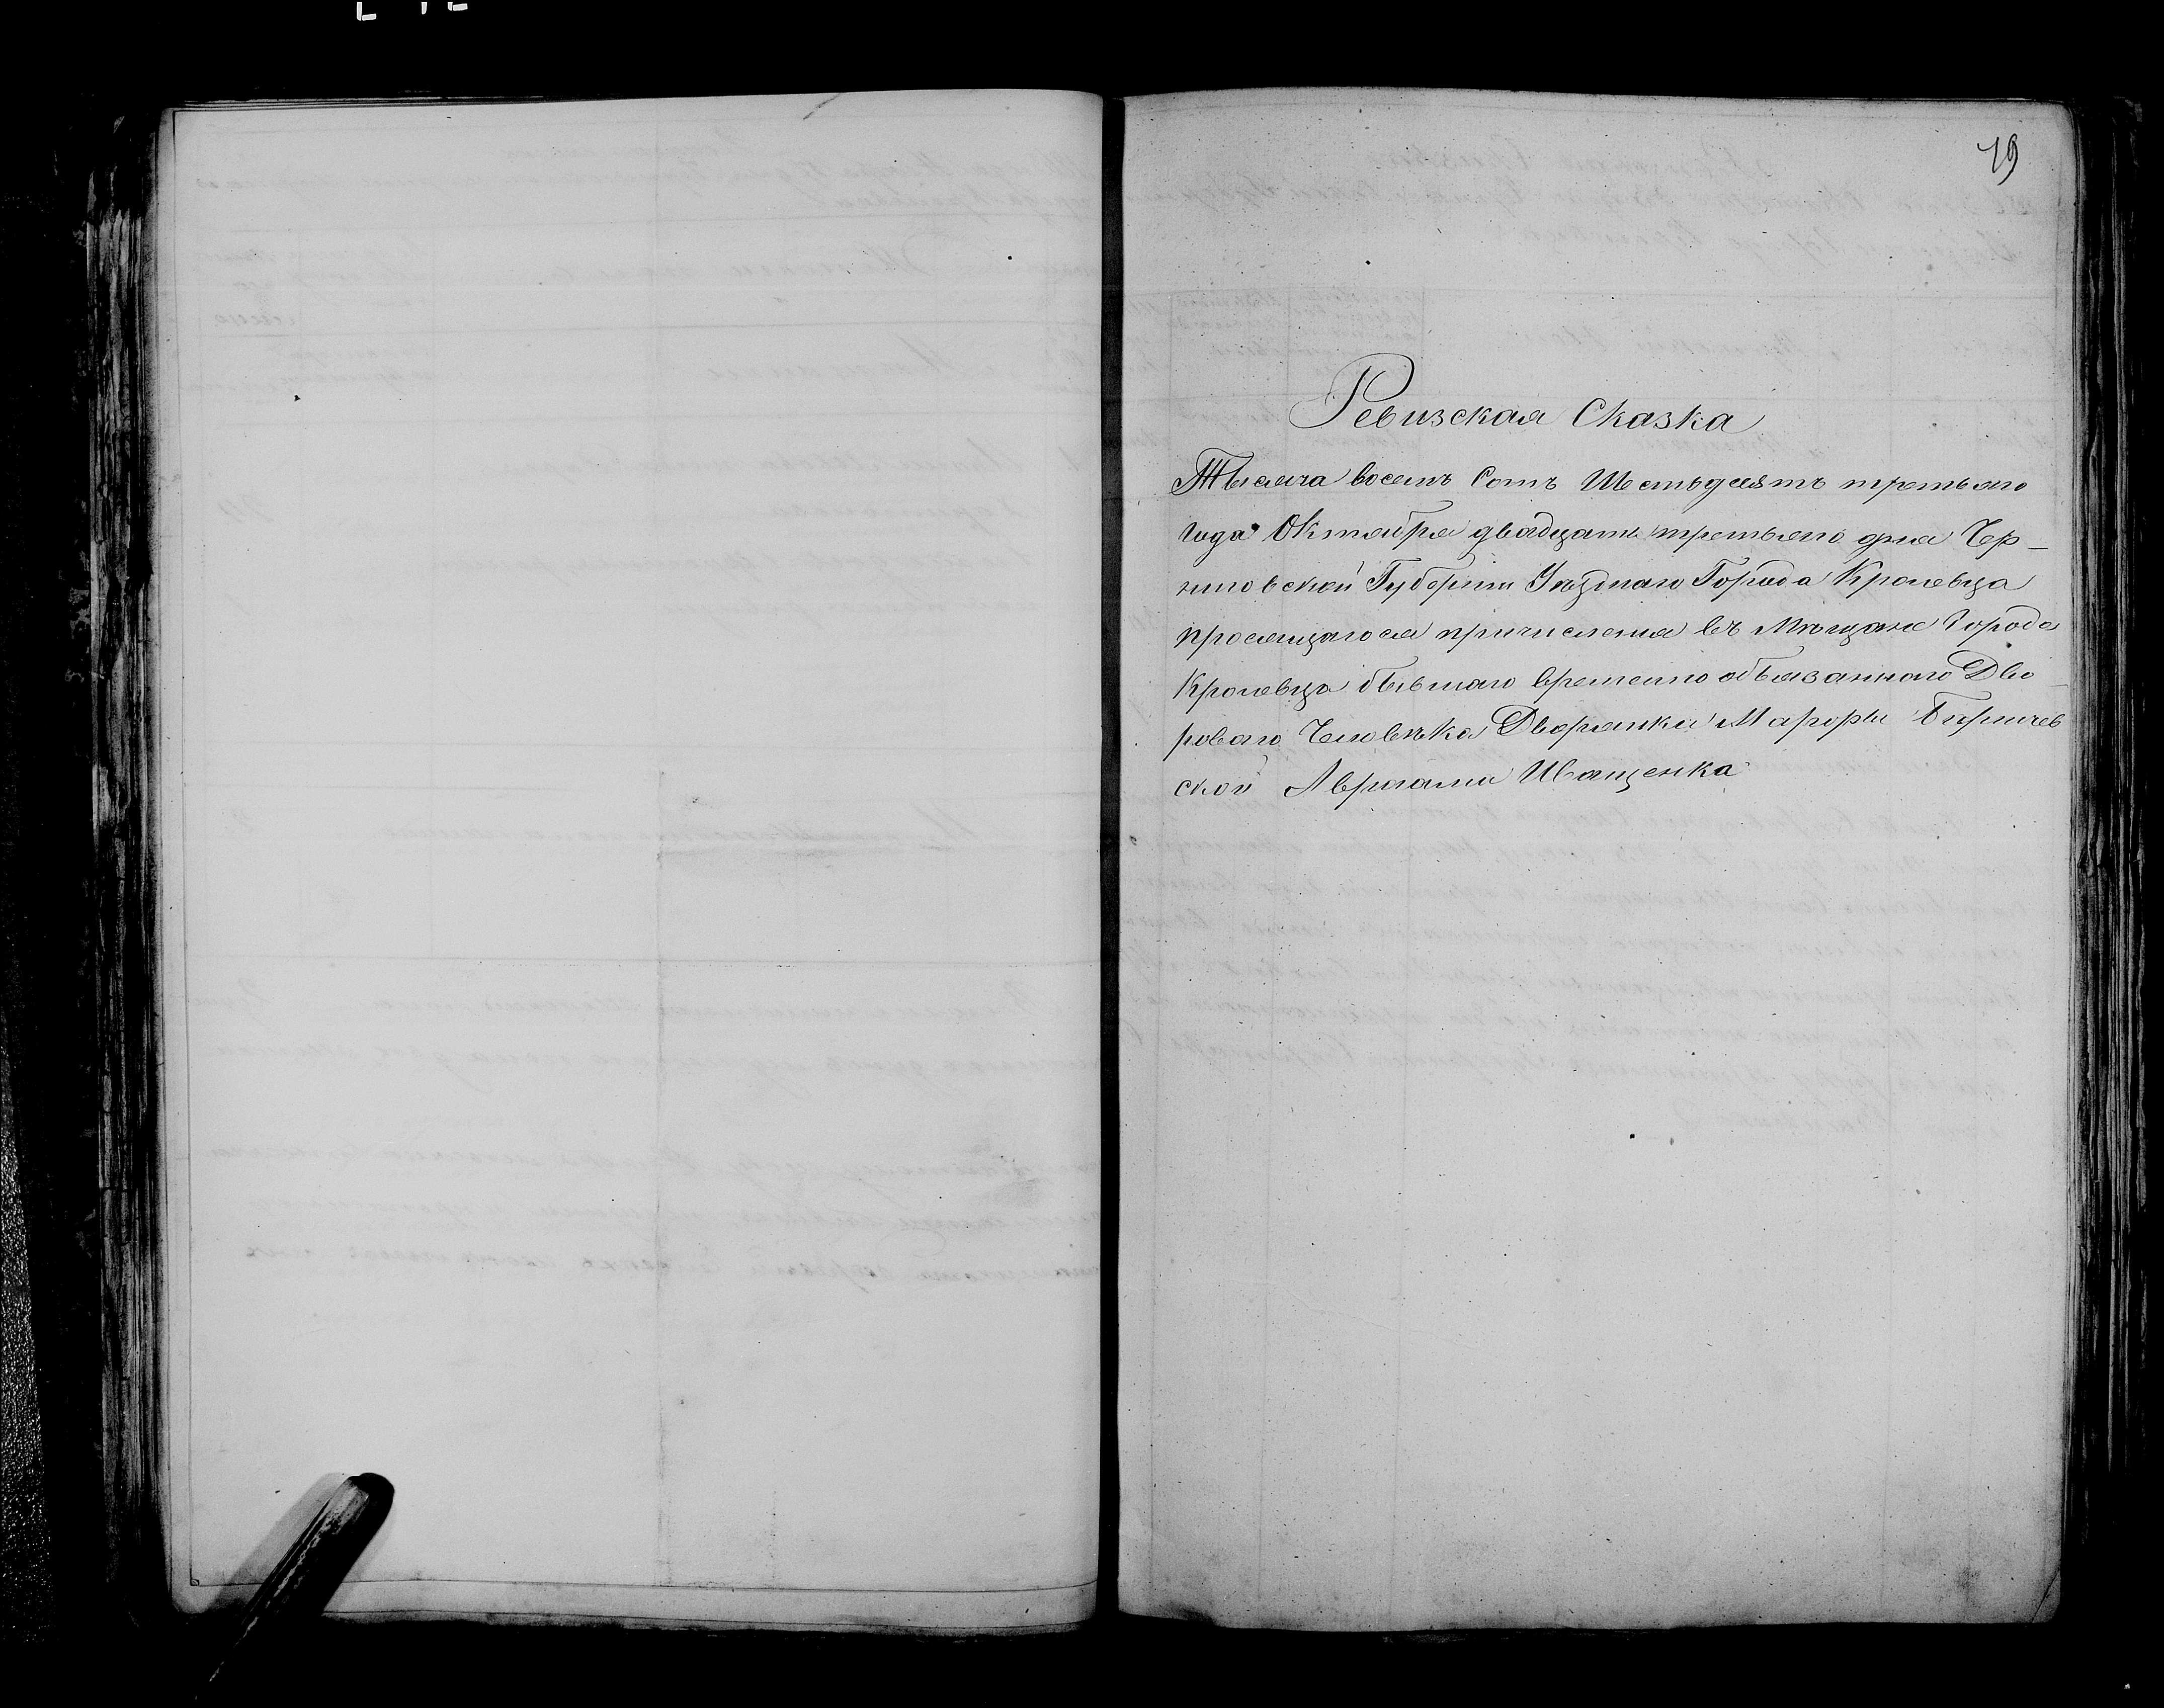 19
Ревизская Сказка
Тысяча восемь Сотъ Шестьдесятъ третьяго
года Октября двадцать третьяго дня Чер-
ниговской Губерніи Уѣзднаго Города Кролевца
просящагося причисленія въ Мѣщане Города
Кролевца бывшаго временно обязаннаго Дво-
роваго Человѣка Дворянки
ской Аврама Иващенка